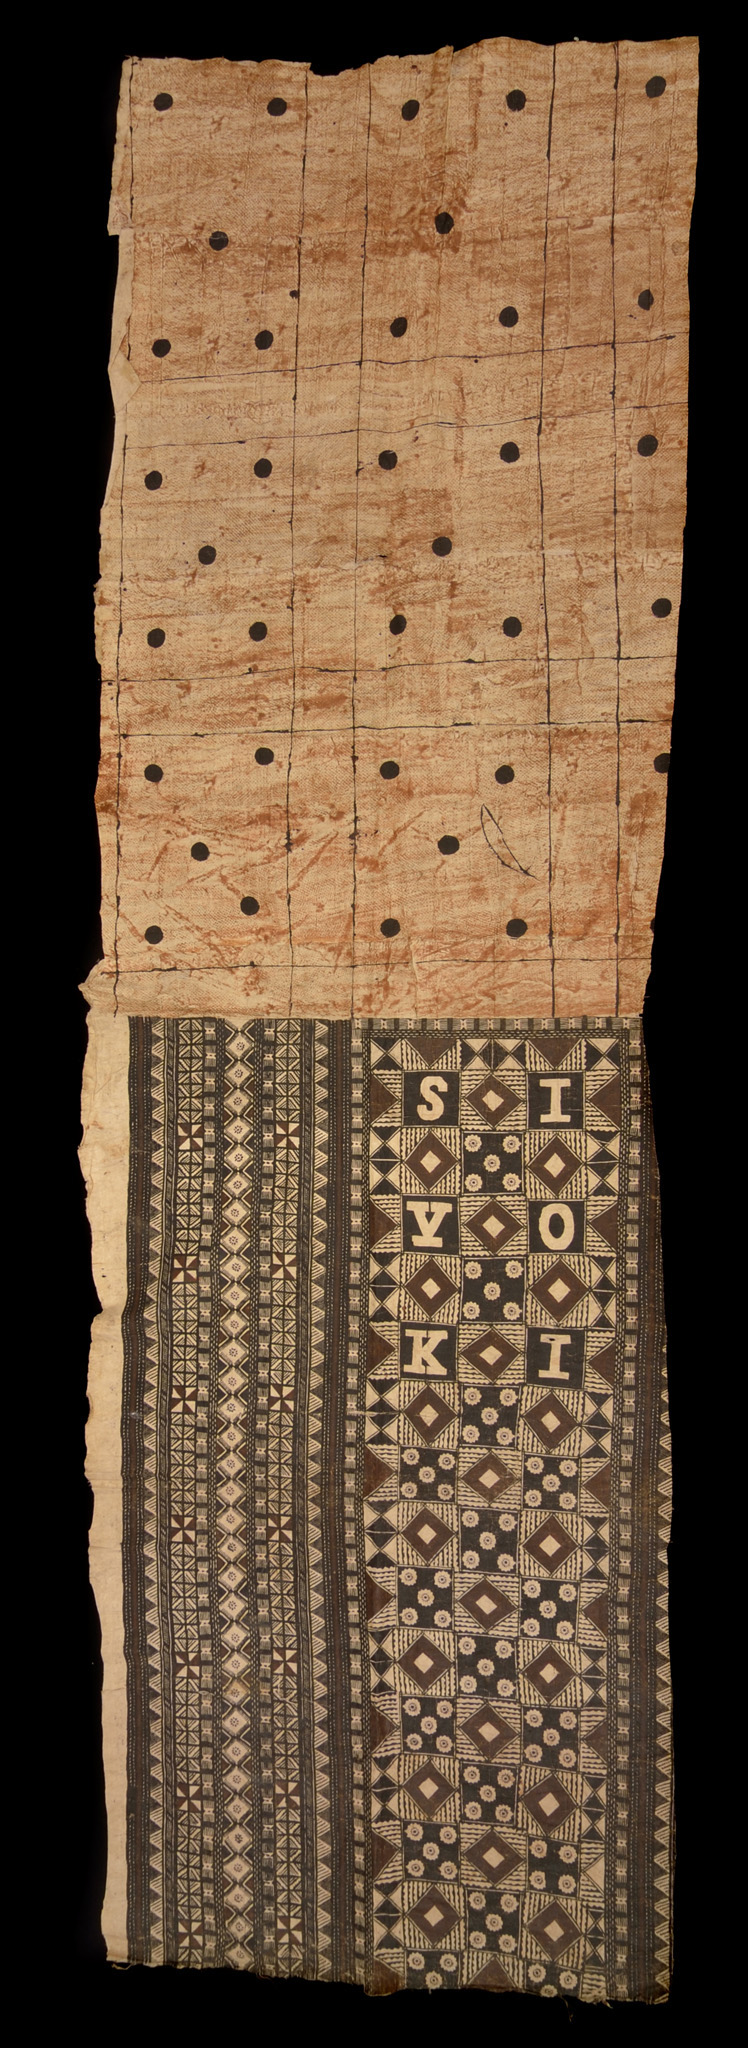 S I
V O
K I